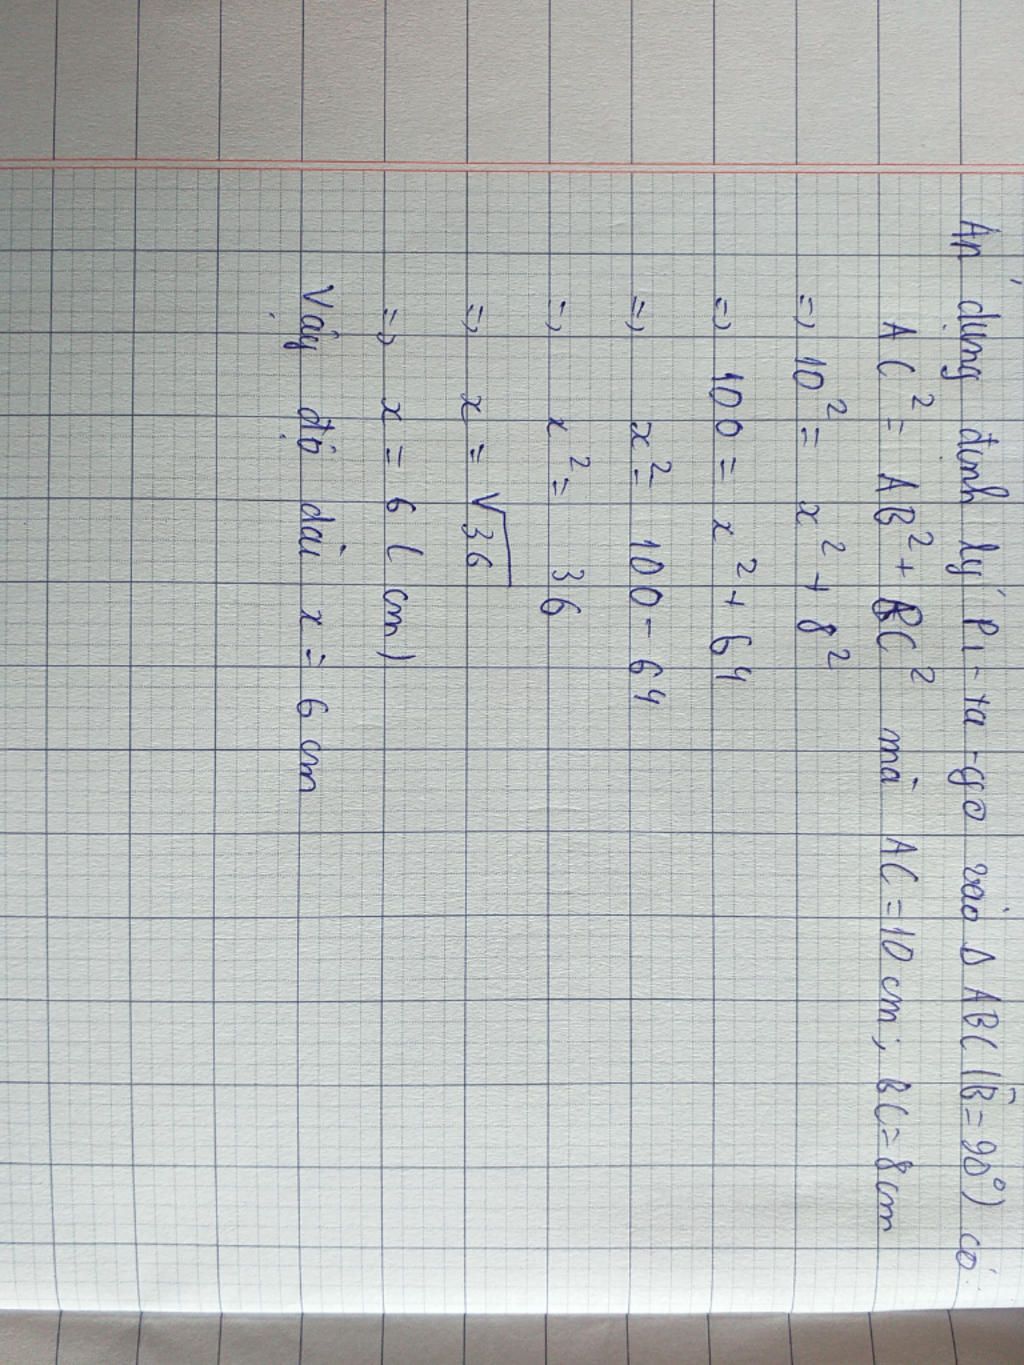 Áp dụng định lý Pi-ta-go vào Δ ABC (B̂ = 90°) có
AC² = AB² + BC² mà AC = 10 cm ; BC = 8 cm
=> 10² = x² + 8²
=> 100 = x² + 64
=> x² = 100 - 64
=> x² = 36
=> x = √36
=> x = 6 (cm)
Vậy độ dài x = 6 cm